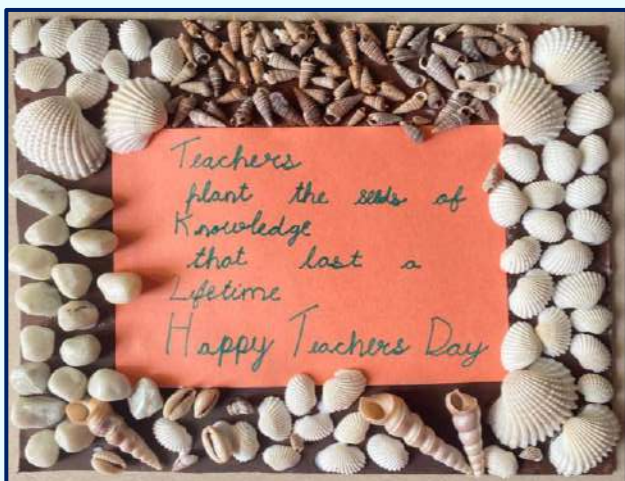 Teachers
plant the seeds of
Knowledge
that last a
Lifetime
Happy Teachers Day